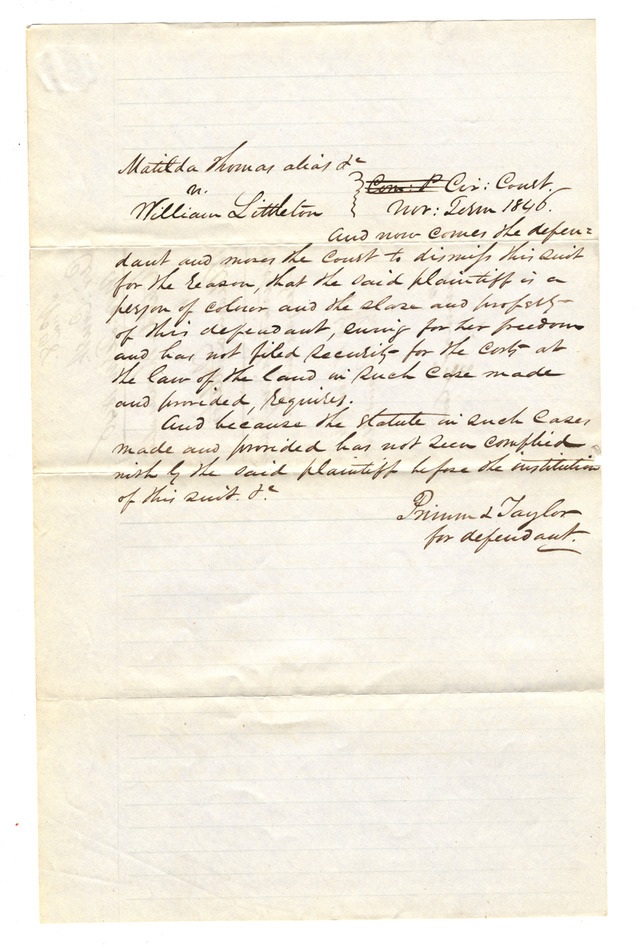 Matilda Thomas alias &c
v. Com: P Cir: Court.
William Littleton Nov: Term 1846.
And now comes the defen=
dant and moves the Court to dismiss this suit
for the reason, that the said plaintiff is a
person of colour and the slave and property
of this defendant, suing for her freedom
and has not filed security for the costs as
the law of the land in such case made
and provided, requires.
And because the statute in such cases
made and provided has not been complied
with by the said plaintiff before the institution
of this suit. &c.
Primm & Taylor
for defendant.